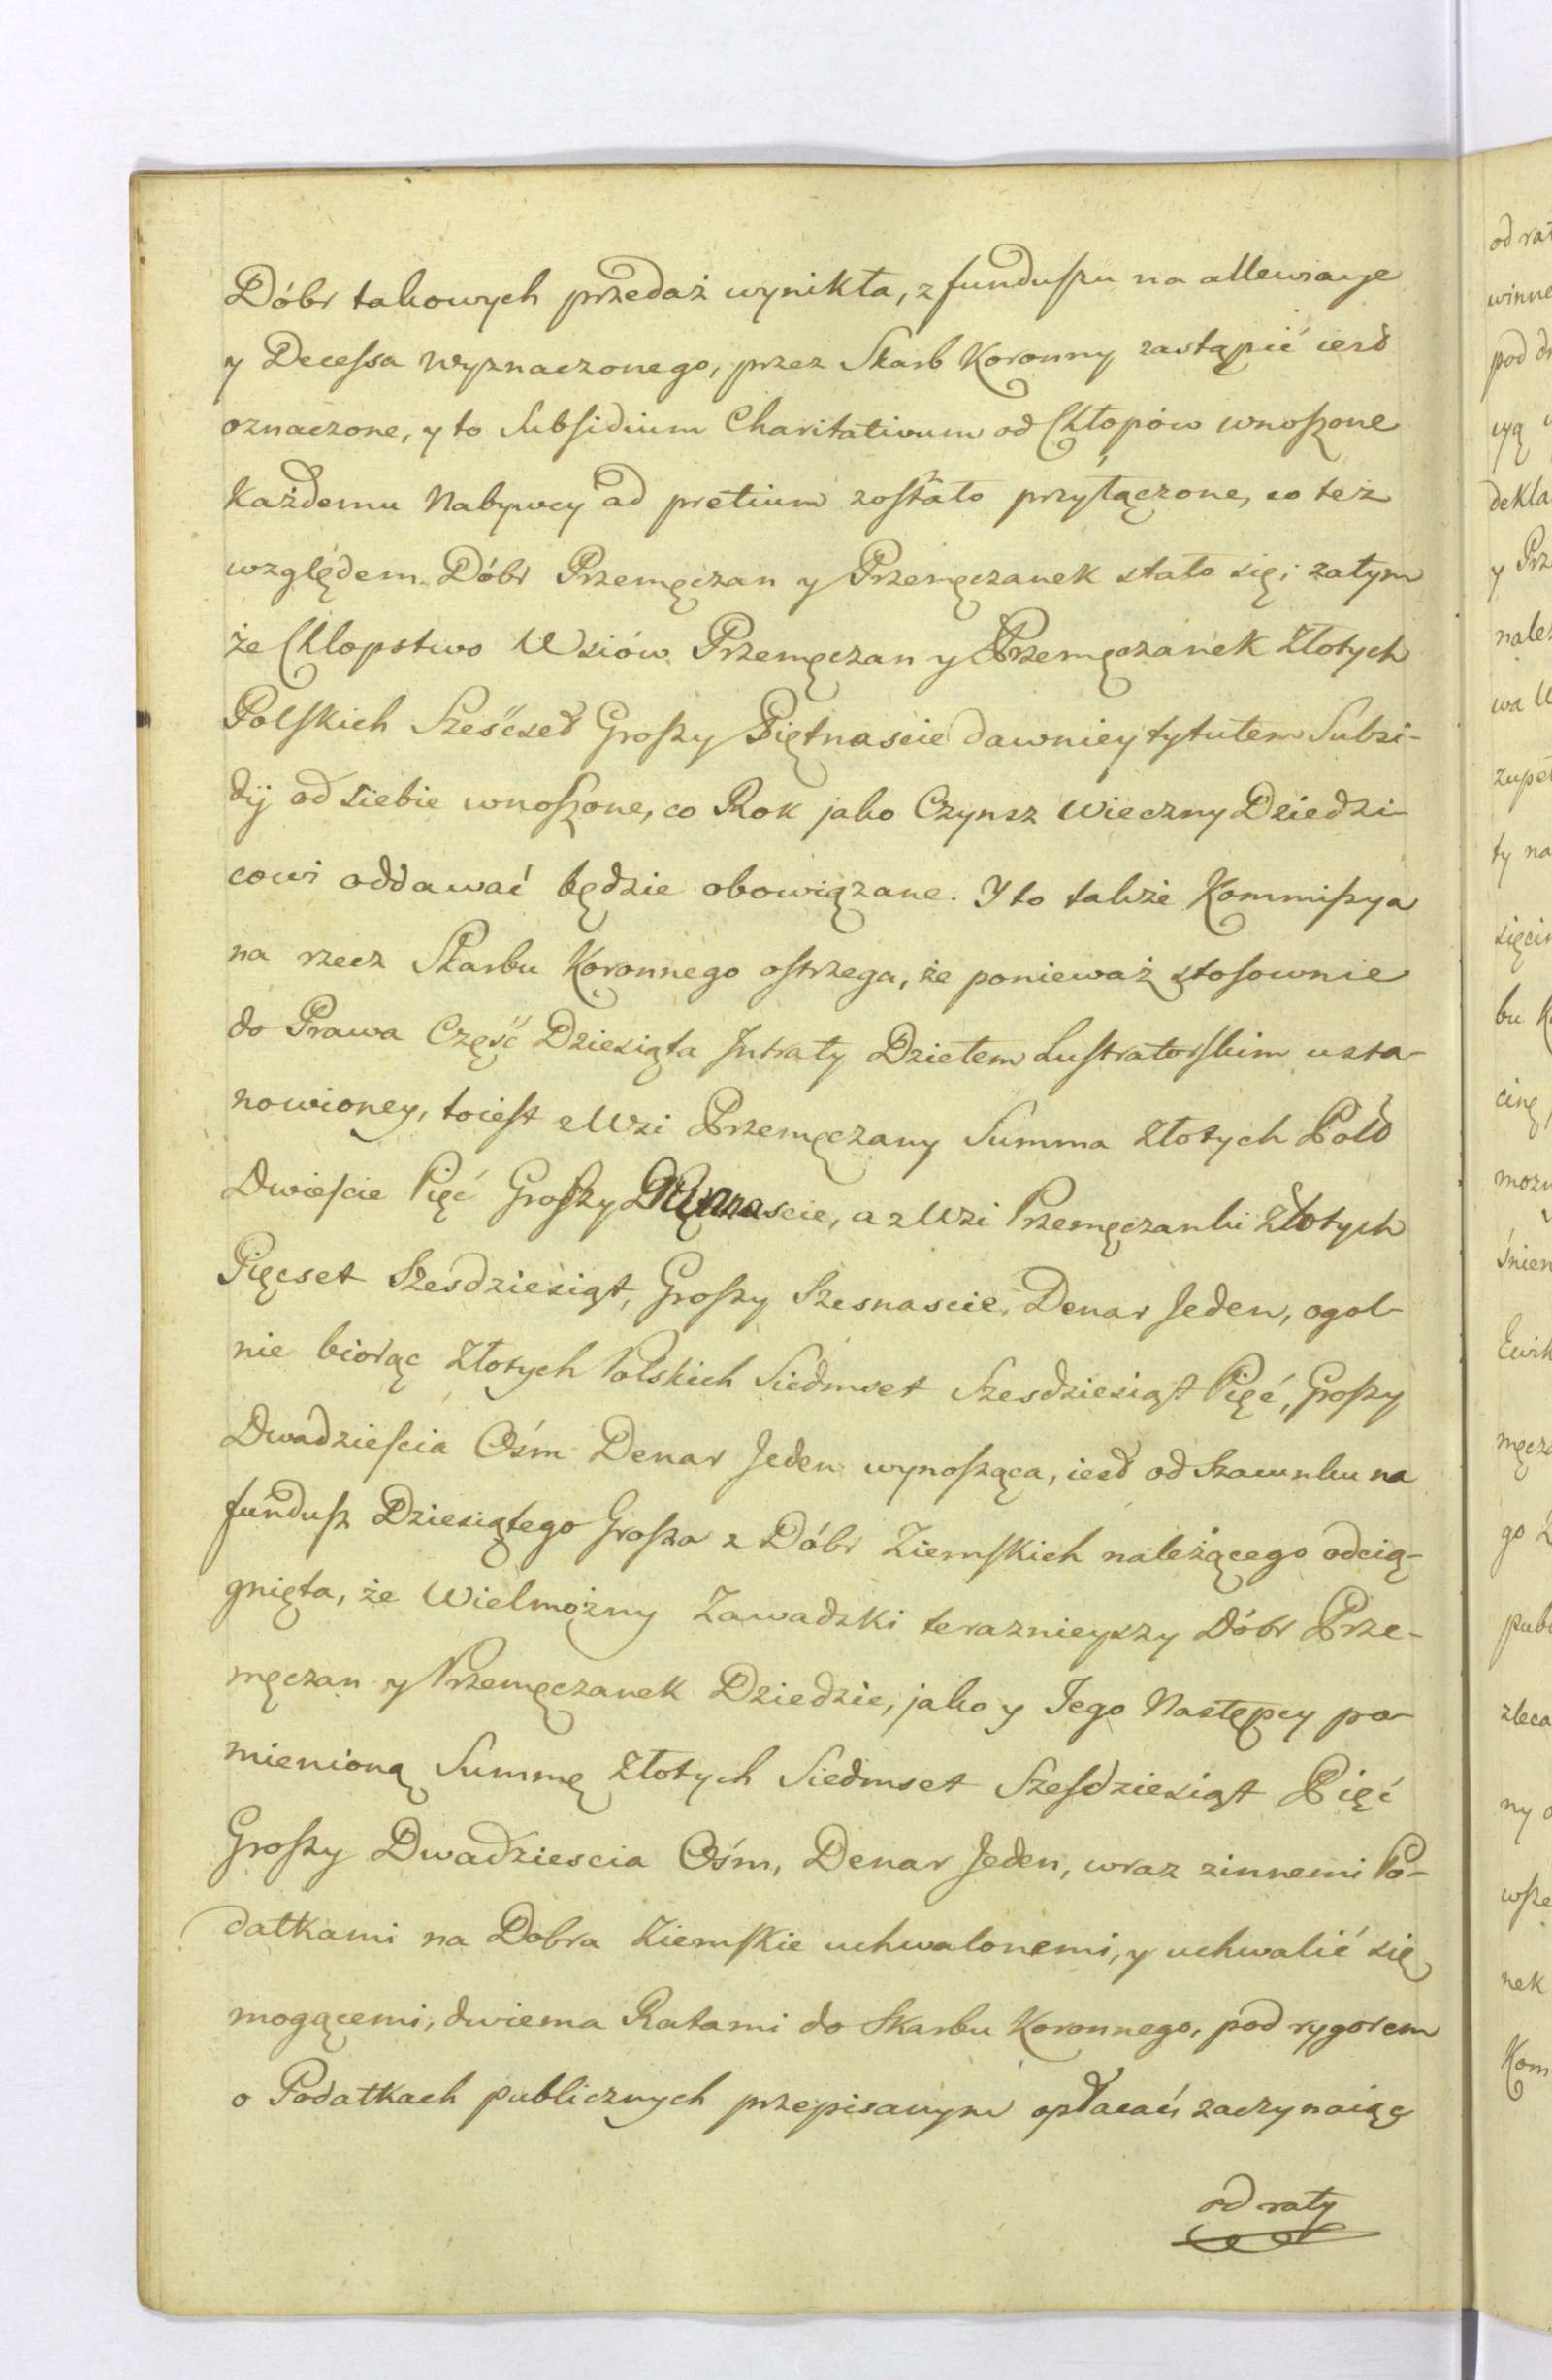 Dóbr takowych przedaż wynikła, z funduszu na allewiacye
y Decessa wyznaczonego, przez Skarb Koronny zastąpić iest
oznaczone, y to Subsidium Charitativum od Chłopów wnoszone
każdemu Nabywcy ad pretium zostało przyłączone, co też
względem Dóbr Przemęczan y Przemęczanek stało się; zatym
że Chłopstwo Wsiów Przemęczan y Przemęczanek Złotych
Polskich Sześćset Groszy Piętnaście dawniey tytułem Subsi-
dij od siebie wnoszone, co Rok jako Czynsz Wieczny Dziedzi-
cowi oddawać będzie obowiązane. Y to także Kommissya
na rzecz Skarbu Koronnego ostrzega, że ponieważ stosownie
do Prawa Część Dziesiąta Jntraty Dziełem Lustratorskim usta-
nowioney, toiest z Wsi Przemęczany Summa Złotych Pols
Dwieście Pięć Groszy Dwanascie, a z Wsi Przemęczanki Złotych
Pięcset Szesdziesiąt, Groszy Szesnascie, Denar Jeden, ogol-
nie biorąc Złotych Polskich Siedmset Szesdziesiąt Pięć, Groszy
Dwadzieścia Ośm Denar Jeden wynosząca, iest od Szacunku na
fundusz Dziesiątego Grosza z Dóbr Ziemskich należącego odcią-
gnięta, że Wielmożny Zawadzki teraznieyszy Dóbr Prze-
męczan y Przemęczanek Dziedzic, jako y Jego Następcy po-
mienioną Summę Złotych Siedmset Szesdziesiąt Pięć
Groszy Dwadziescia Ośm, Denar Jeden, wraz zinnemi Po-
datkami na Dobra Ziemskie uchwalonemi, y uchwalić się
mogącemi, dwiema Ratami do Skarbu Koronnego, pod rygorem
o Podatkach publicznych przepisanym opłacać, zaczynaiąc
od raty
od rat
winne
pod
cyą
dekla
y Prz
należ
wa
zupeł
ty na
sięcin
bu
cinę
śnien
męcz
go
publ
zleca
ny
wsze
nek
Kom